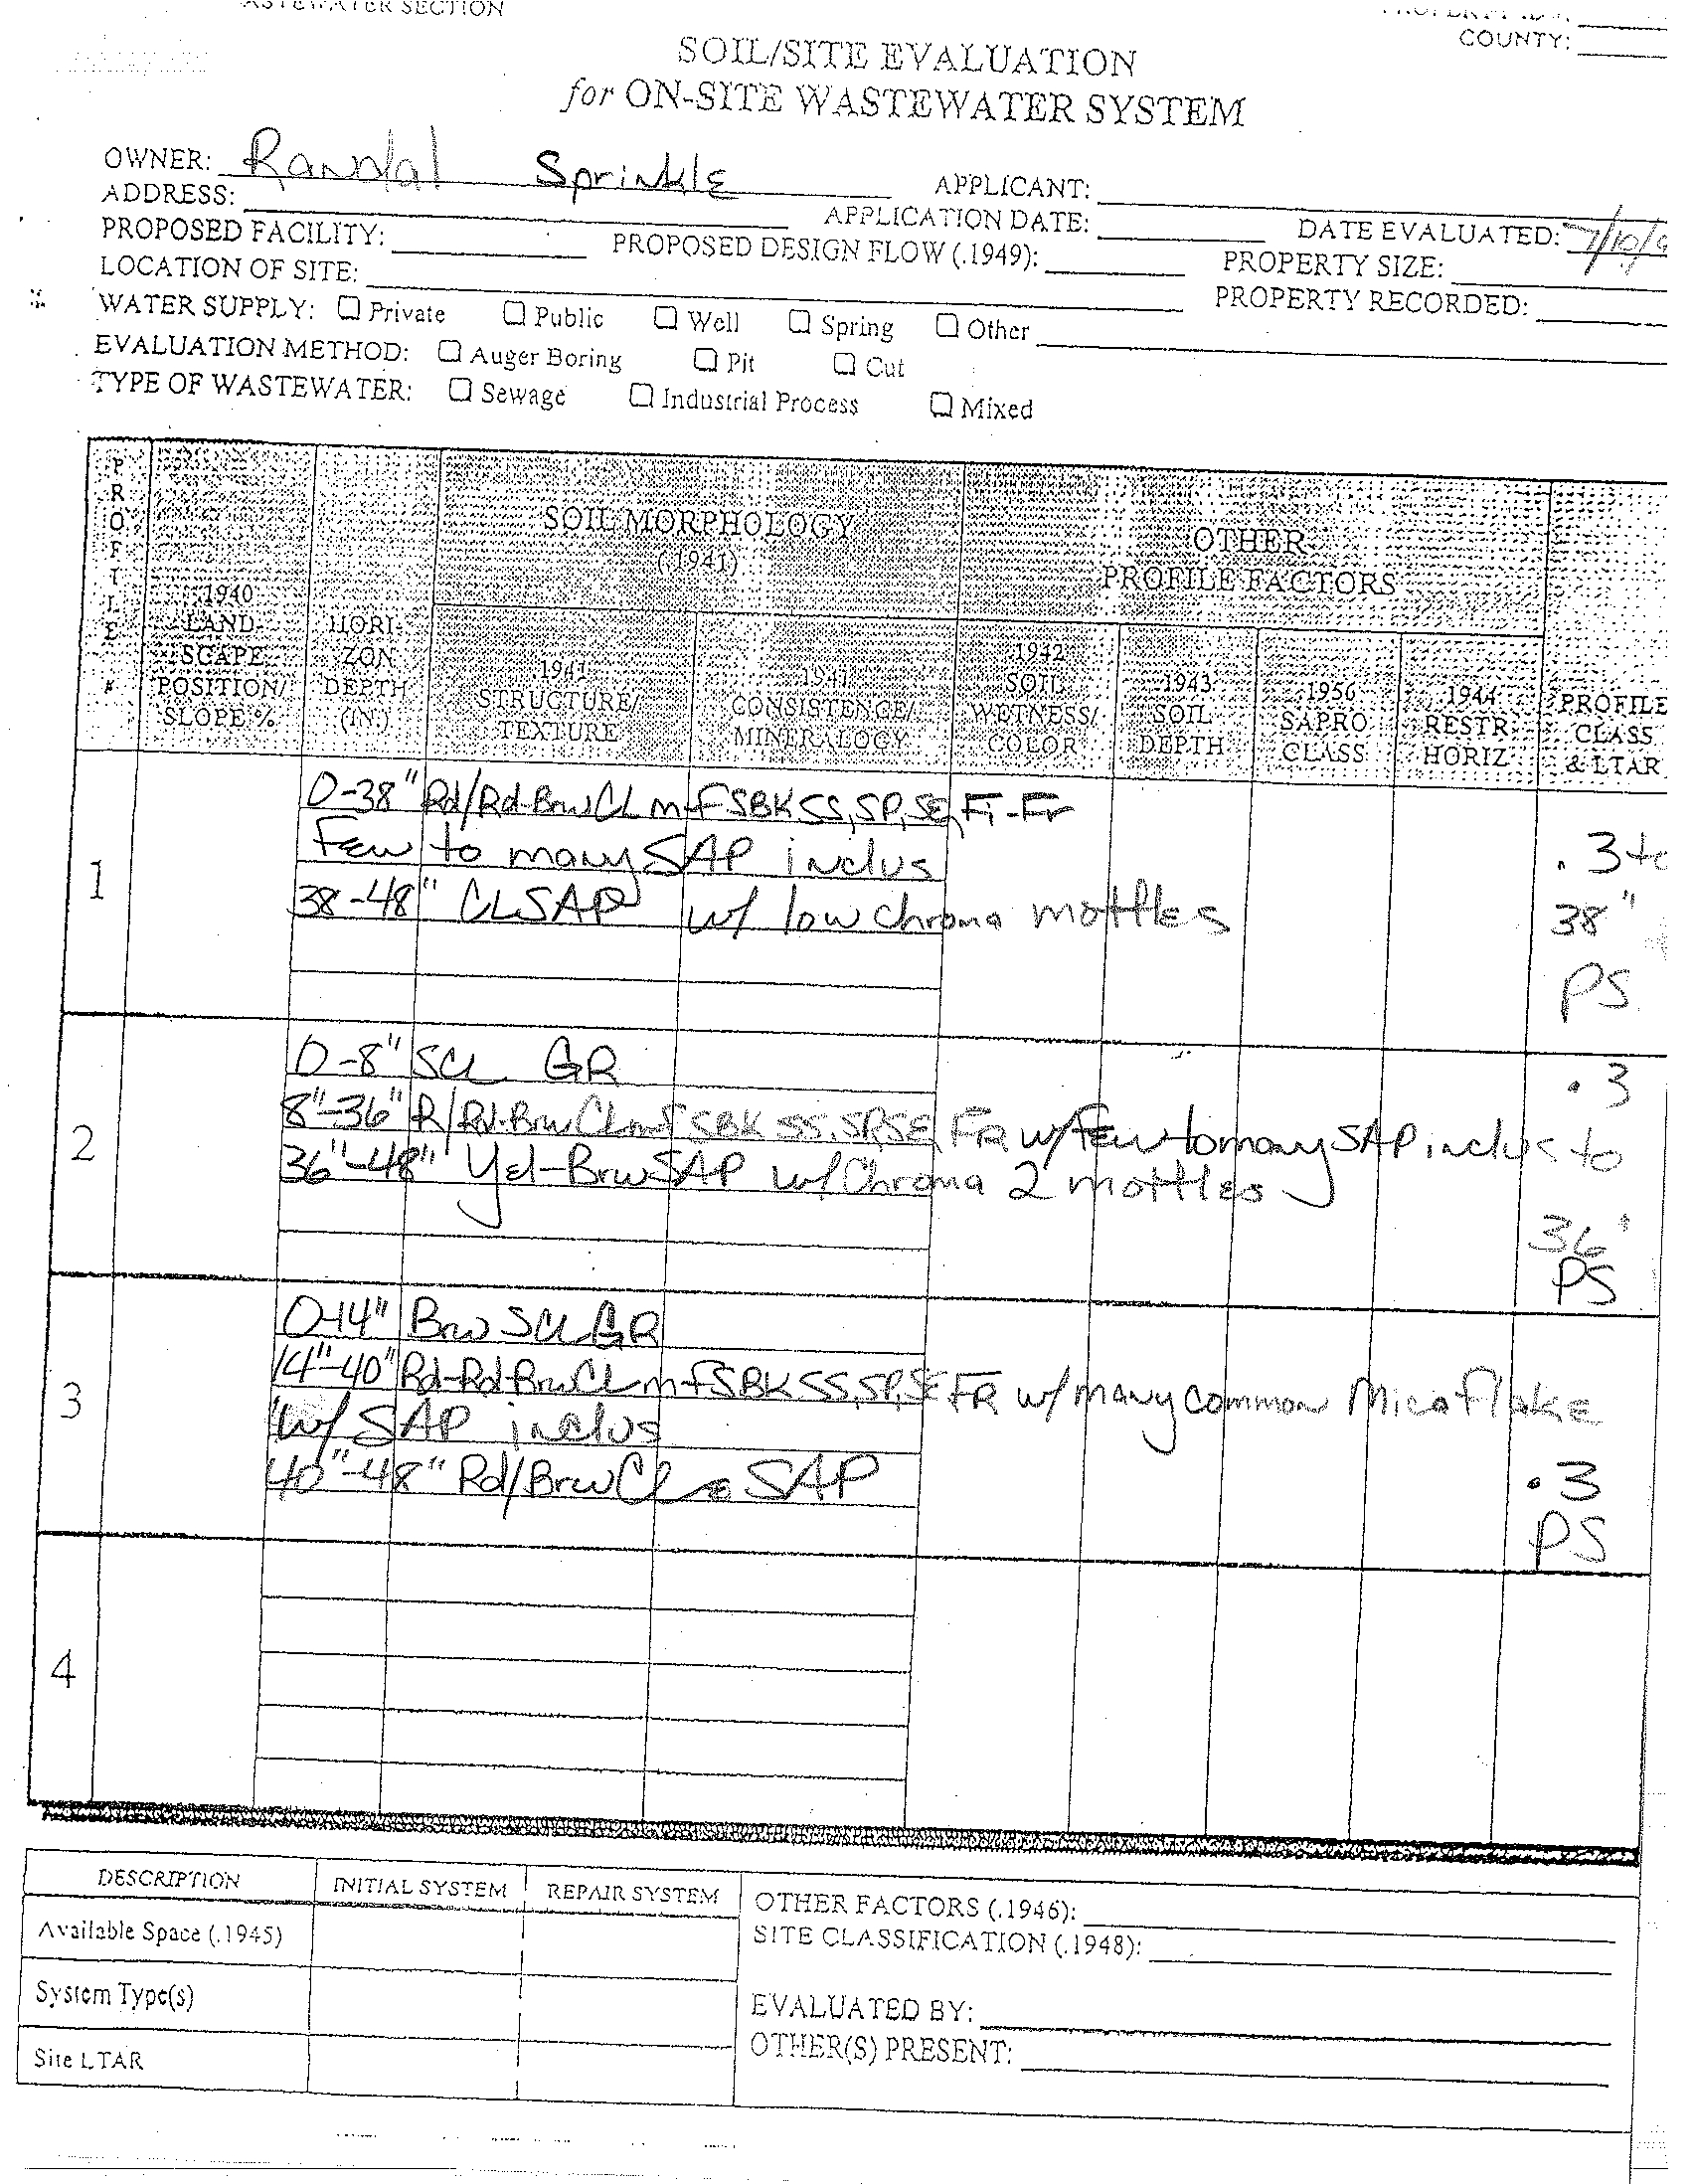 WASTEWATER SECTION
PROPERTY ID #:
COUNTY:
SOIL/SITE EVALUATION
for ON-SITE WASTEWATER SYSTEM
OWNER: Randal Sprinkle
APPLICANT:
ADDRESS:
APPLICATION DATE:
DATE EVALUATED: 7/10/9
PROPOSED FACILITY:
PROPOSED DESIGN FLOW (.1949):
PROPERTY SIZE:
LOCATION OF SITE:
PROPERTY RECORDED:
WATER SUPPLY: Private Public Well Spring Other
EVALUATION METHOD: Auger Boring Pit Cut
TYPE OF WASTEWATER: Sewage Industrial Process Mixed
PROFILE #
.1940 LAND- SCAPE POSITION/ SLOPE %
HORI- ZON DEPTH (IN.)
SOIL MORPHOLOGY (.1941)
.1941 STRUCTURE/ TEXTURE
.1941 CONSISTENCE/ MINERALOGY
OTHER PROFILE FACTORS
.1942 SOIL WETNESS/ COLOR
.1943 SOIL DEPTH
.1956 SAPRO CLASS
.1944 RESTR HORIZ
PROFILE CLASS & LTAR
1
0-38" Rd/Rd-Brw CL m-f SBK SS, SP, SE, Fi-Fr
Few to many SAP inclus
38-48" CL SAP w/ low chroma mottles
.3 to
38"
PS
2
0-8" SCL GR
8"-36" R/Rd-Brw CL m-f SBK SS, SP, SE, FR w/ Few to many SAP inclus
36"-48" Yel-Brw SAP w/ Chroma 2 mottles
.3
to
36"
PS
3
0-14" Brw SCL GR
14"-40" Rd-Rd-Brw CL m-f SBK SS, SP, SE FR w/ many common Mica flake
w/ SAP inclus
40"-48" Rd/Brw CL SAP
.3
PS
4
DESCRIPTION INITIAL SYSTEM REPAIR SYSTEM
Available Space (.1945)
System Type(s)
Site LTAR
OTHER FACTORS (.1946):
SITE CLASSIFICATION (.1948):
EVALUATED BY:
OTHER(S) PRESENT: